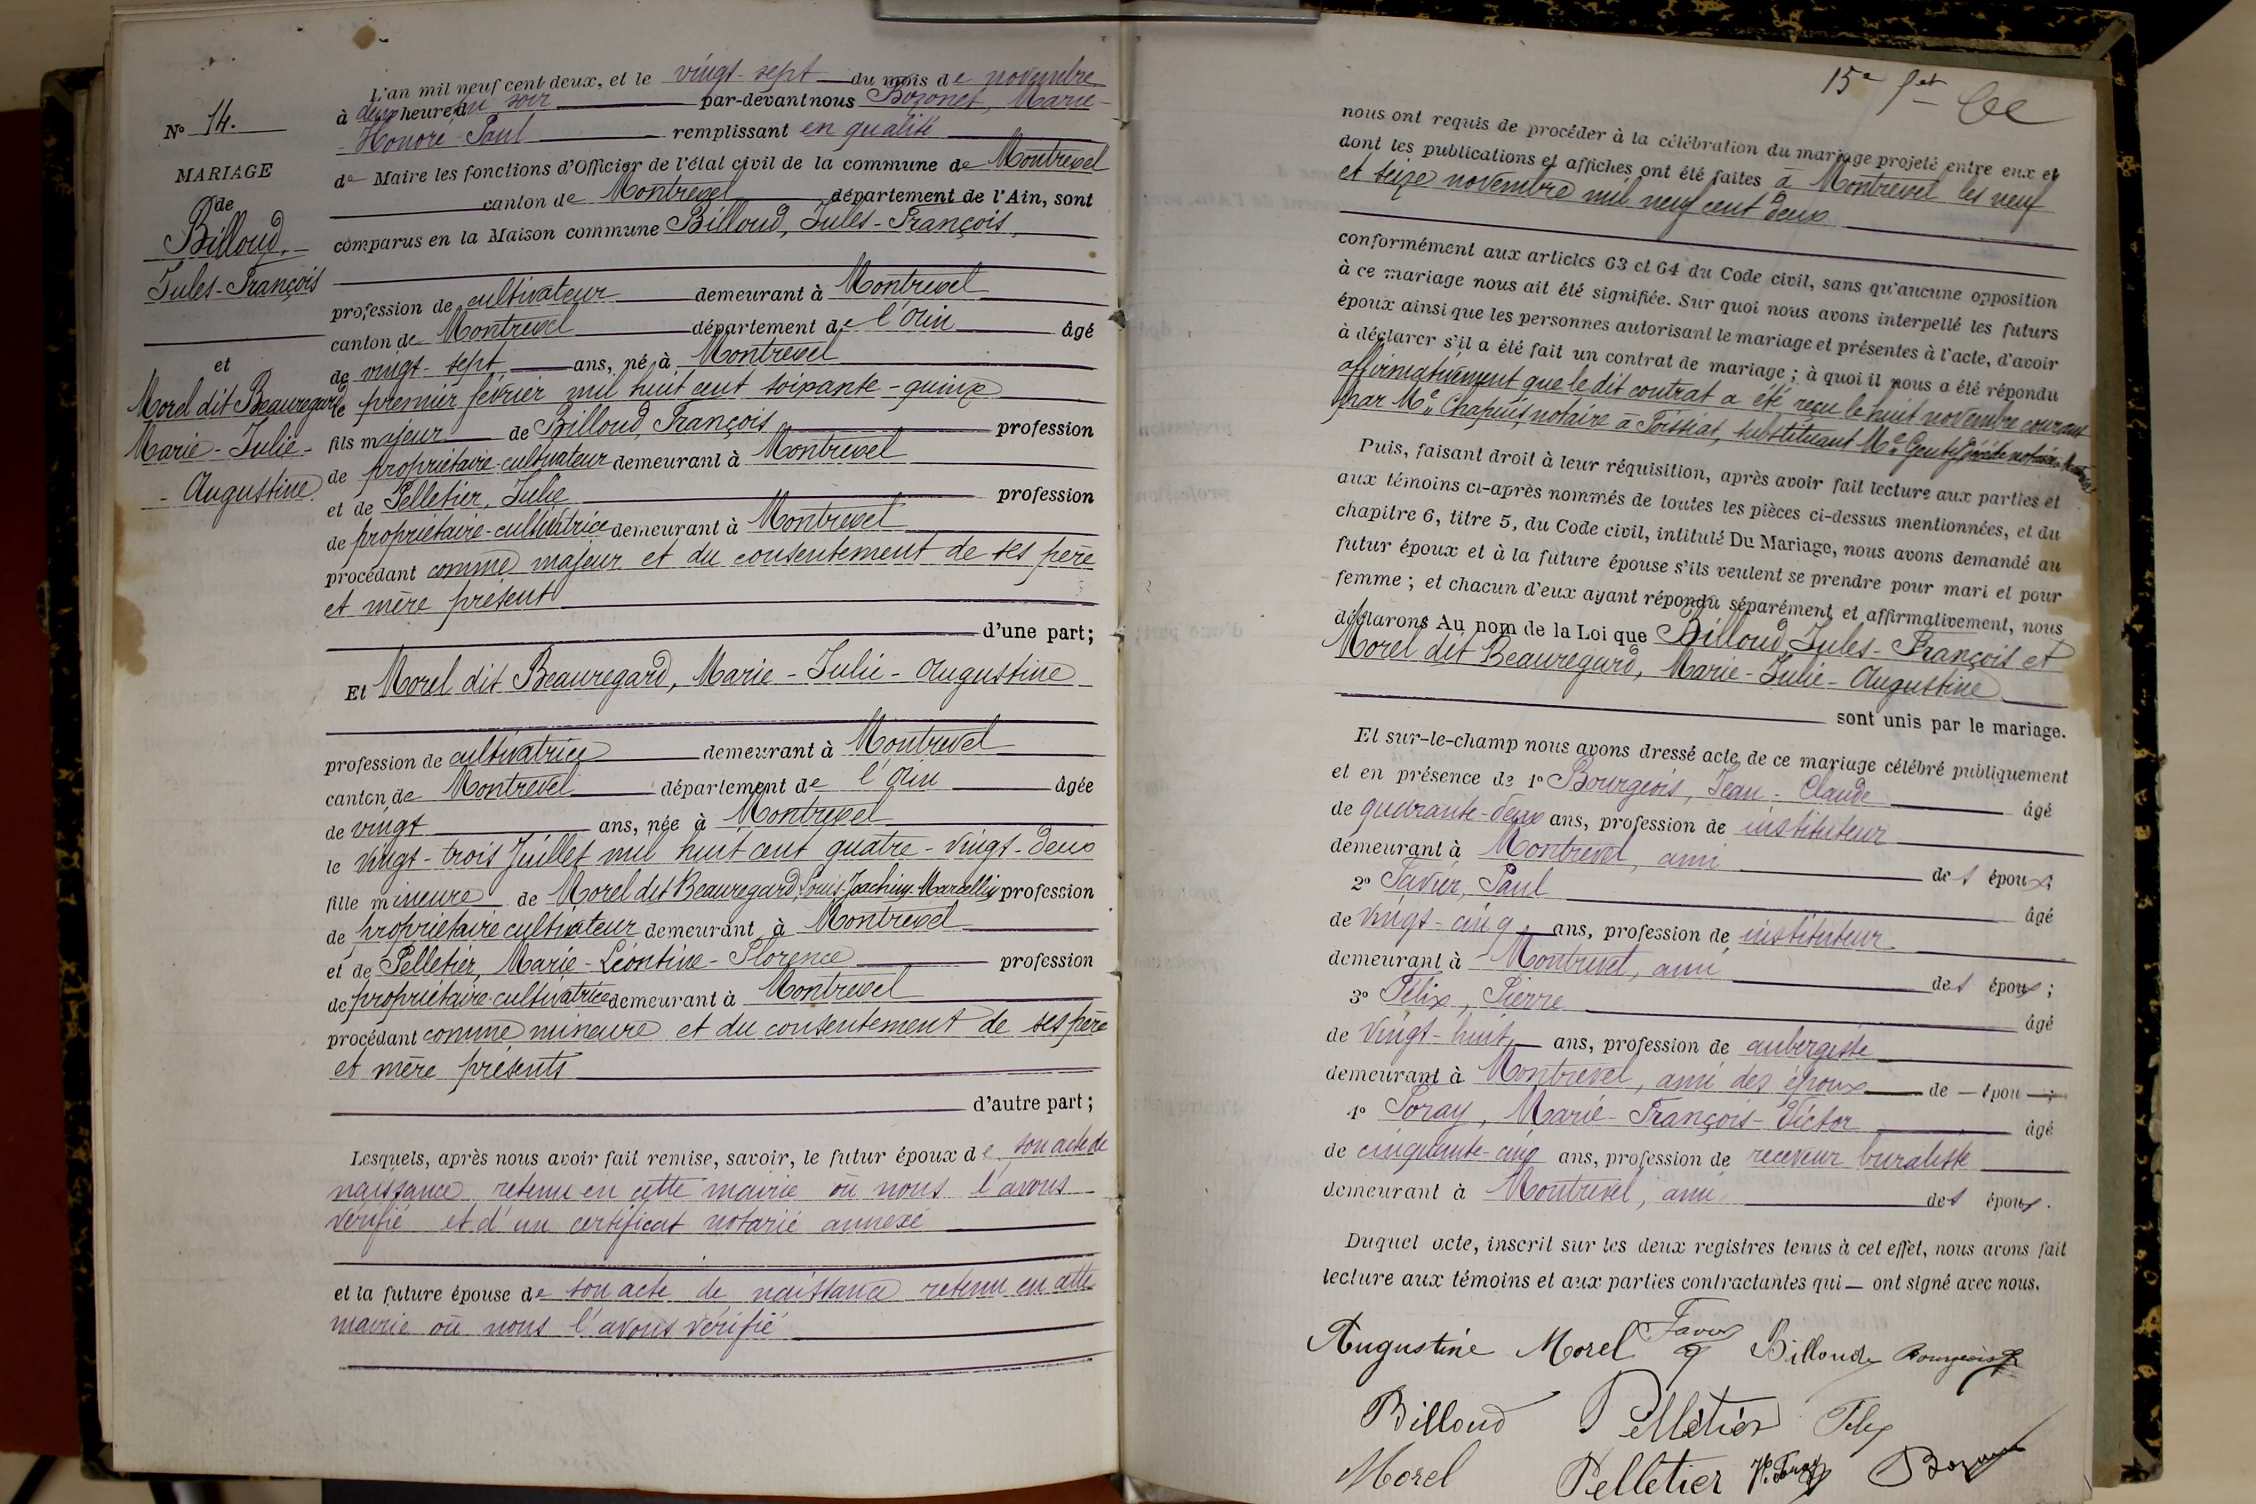 N° 14.
MARIAGE
de
Billoud,
Jules-François
et
Morel dit Beauregard
Marie-Julie-
-Augustine.
L'an mil neuf cent deux, et le vingt-sept du mois de novembre
à deux heures du soir par-devant nous Bozonet, Marie-
-Honoré-Paul remplissant en qualité
de Maire les fonctions d'Officier de l'état civil de la commune de Montrevel
canton de Montrevel département de l'Ain, sont
comparus en la Maison commune Billoud, Jules-François,
profession de cultivateur demeurant à Montrevel
canton de Montrevel département de l'Ain âgé
de vingt-sept ans, né à Montrevel
le premier février mil huit cent soixante-quinze
fils majeur de Billoud, François profession
de propriétaire-cultivateur demeurant à Montrevel
et de Pelletier, Julie profession
de propriétaire-cultivatrice demeurant à Montrevel
procédant comme majeur et du consentement de ses père
et mère présent
d'une part;
Et Morel dit Beauregard, Marie-Julie-Augustine
profession de cultivatrice demeurant à Montrevel
canton de Montrevel département de l'Ain âgée
de vingt ans, née à Montrevel
le vingt-trois Juillet mil huit cent quatre-vingt-deux
fille mineure de Morel dit Beauregard, Louis-Joachim-Marcellin profession
de propriétaire cultivateur demeurant à Montrevel
et de Pelletier, Marie-Léontine-Florence profession
de propriétaire-cultivatrice demeurant à Montrevel
procédant comme mineure et du consentement de ses père
et mère présents
d'autre part;
Lesquels, après nous avoir fait remise, savoir, le futur époux de son acte de
naissance retenu en cette mairie où nous l'avons
vérifié et d'un certificat notarié annexé
et la future épouse de son acte de naissance retenu en cette
mairie où nous l'avons vérifié
15e fet
nous ont requis de procéder à la célébration du mariage projeté entre eux et
dont les publications et affiches ont été faites à Montrevel les neuf
et seize novembre mil neuf cent deux
conformément aux articles 63 et 64 du Code civil, sans qu'aucune opposition
à ce mariage nous ait été signifiée. Sur quoi nous avons interpellé les futurs
époux ainsi que les personnes autorisant le mariage et présentes à l'acte, d'avoir
à déclarer s'il a été fait un contrat de mariage; à quoi il nous a été répondu
affirmativement que le dit contrat a été reçu le huit novembre courant
par Me Chapuis, notaire à Foissiat, substituant Me notaire
Puis, faisant droit à leur réquisition, après avoir fait lecture aux parties et
aux témoins ci-après nommés de toutes les pièces ci-dessus mentionnées, et du
chapitre 6, titre 5, du Code civil, intitulé Du Mariage, nous avons demandé au
futur époux et à la future épouse s'ils veulent se prendre pour mari et pour
femme; et chacun d'eux ayant répondu séparément et affirmativement, nous
déclarons Au nom de la Loi que Billoud Jules-François et
Morel dit Beauregard, Marie-Julie-Augustine
sont unis par le mariage.
Et sur-le-champ nous avons dressé acte de ce mariage célébré publiquement
et en présence de 1° Bourgeois, Jean-Claude âgé
de quarante-deux ans, profession de instituteur
demeurant à Montrevel, ami des époux;
2° Favier, Paul âgé
de vingt-cinq ans, profession de instituteur
demeurant à Montrevel, ami des époux;
3° Félix, Pierre âgé
de vingt-huit ans, profession de aubergiste
demeurant à Montrevel, ami des époux de — épou —;
4° Foray, Marie-François-Victor âgé
de cinquante-cinq ans, profession de receveur buraliste
demeurant à Montrevel, ami des époux.
Duquel acte, inscrit sur les deux registres tenus à cet effet, nous avons fait
lecture aux témoins et aux parties contractantes qui — ont signé avec nous.
Augustine Morel Favier Billoud Bourgeois
Billoud Pelletier Felix
Morel Pelletier V. Foray Bozonet